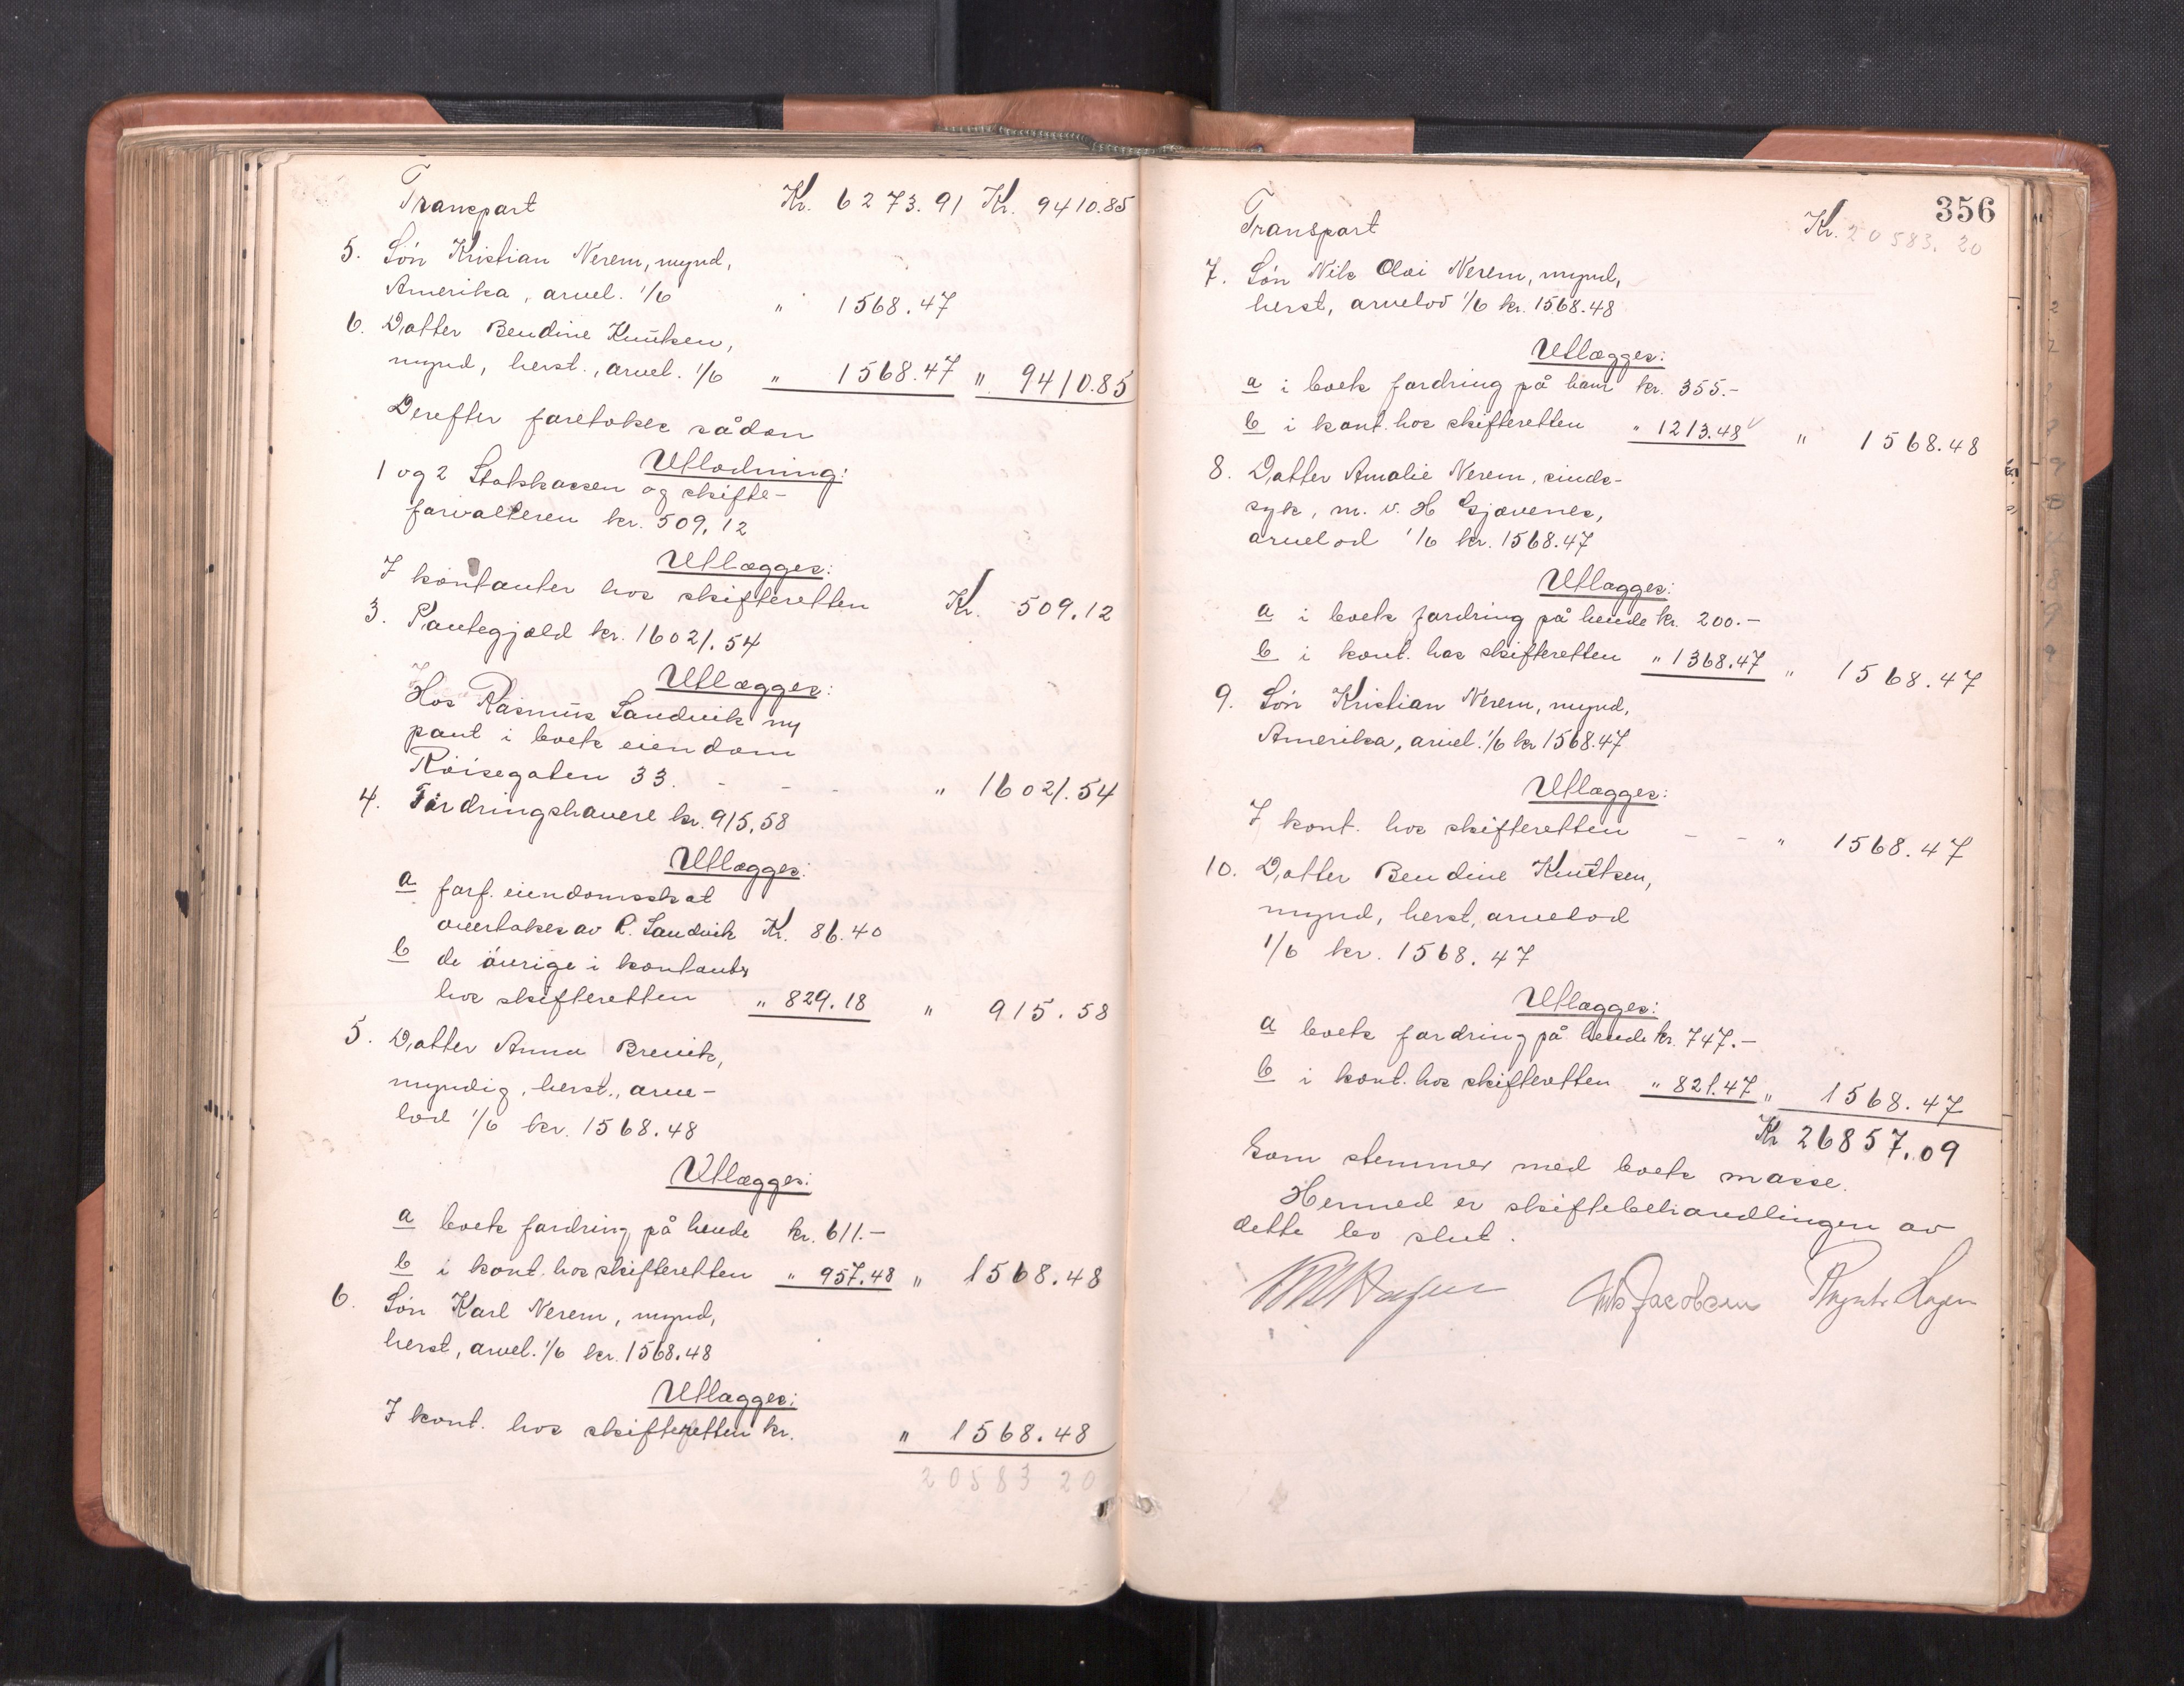 Transport Kr. 6273.91 Kr. 9410.85
5. Søn Kristian Nerem, mynd,
Amerika, arvel. 1/6 " 1568.47
6. Datter Bendine Knutsen,
mynd, herst., arvel. 1/6 " 1568.47 " 9410.85
Derefter foretokes sådan
Utlodning:
1 og 2 Statskassen og skifte-
forvalteren kr. 509,12
Utlægges:
I kontanter hos skifteretten Kr. 509.12
3. Pantegjæld kr. 16021.54
Utlægges:
Hos Rasmus Sandvik ny
pant i boets eiendom
Røisegaten 33. - - - " 16021.54
4. Fordringshavere kr. 915,58
Utlægges:
a forf. eiendomsskat
overtakes av R. Sandvik Kr. 86.40
b de øvrige i kontanter
hos skifteretten " 829.18 " 915.58
5. Datter Anna Brevik,
myndig, herst., arve-
lod 1/6 kr. 1568.48
Utlægges:
a boets fordring på hende kr. 611.-
b i kont. hos skifteretten " 957.48 " 1568.48
6. Søn Karl Nerem, mynd,
herst, arvel. 1/6 kr. 1568.48
Utlægges:
I kont. hos skifteretten kr. " 1568.48
20583 20
356
Transport Kr. 20583.20
7. Søn Nils Olai Nerem, mynd,
herst, arvelod 1/6 kr. 1568.48
Utlægges:
a i boets fordring på ham kr. 355.-
b i kont. hos skifteretten " 1213.48 " 1568.48
8. Datter Amalie Nerem, sinds-
syk, m. v. H Gjævenes,
arvelod 1/6 kr. 1568.47
Utlægges:
a i boets fordring på hende kr. 200.-
b i kont. hos skifteretten " 1368.47 " 1568.47
9. Søn Kristian Nerem, mynd,
Amerika, arvel. 1/6 kr 1568.47
Utlægges:
I kont. hos skifteretten - - " 1568.47
10. Datter Bendine Knutsen,
mynd, herst, arvelod
1/6 kr. 1568.47
Utlægges:
a boets fordring på hende kr. 747.-
b i kont. hos skifteretten " 821.47 " 1568.47
Kr 26857.09
Som stemmer med boets masse.
Hermed er skiftebehandlingen av
dette bo slut.
Jacobsen